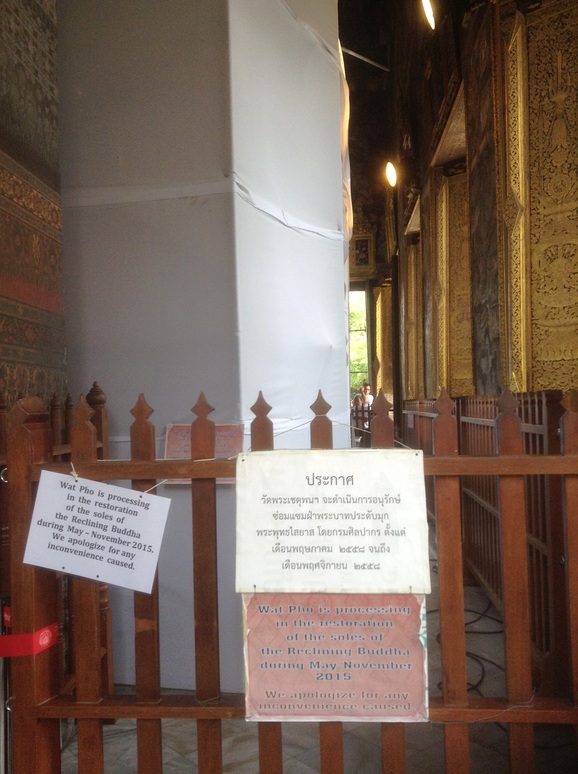 Wat Pho is processing
in the restoration
of the soles of
the Reclining Buddha
during May – November 2015.
We apologize for any
inconvenience caused.
ประกาศ
วัดพระเชตุพนฯ จะดำเนินการอนุรักษ์
ซ่อมแซมฝ่าพระบาทประดับมุก
พระพุทธไสยาส โดยกรมศิลปากร ตั้งแต่
เดือนพฤษภาคม ๒๕๕๘ จนถึง
เดือนพฤศจิกายน ๒๕๕๘
Wat Pho is processing
in the restoration
of the soles of
the Reclining Buddha
during May November
2015
We apologize for any
inconvenience caused